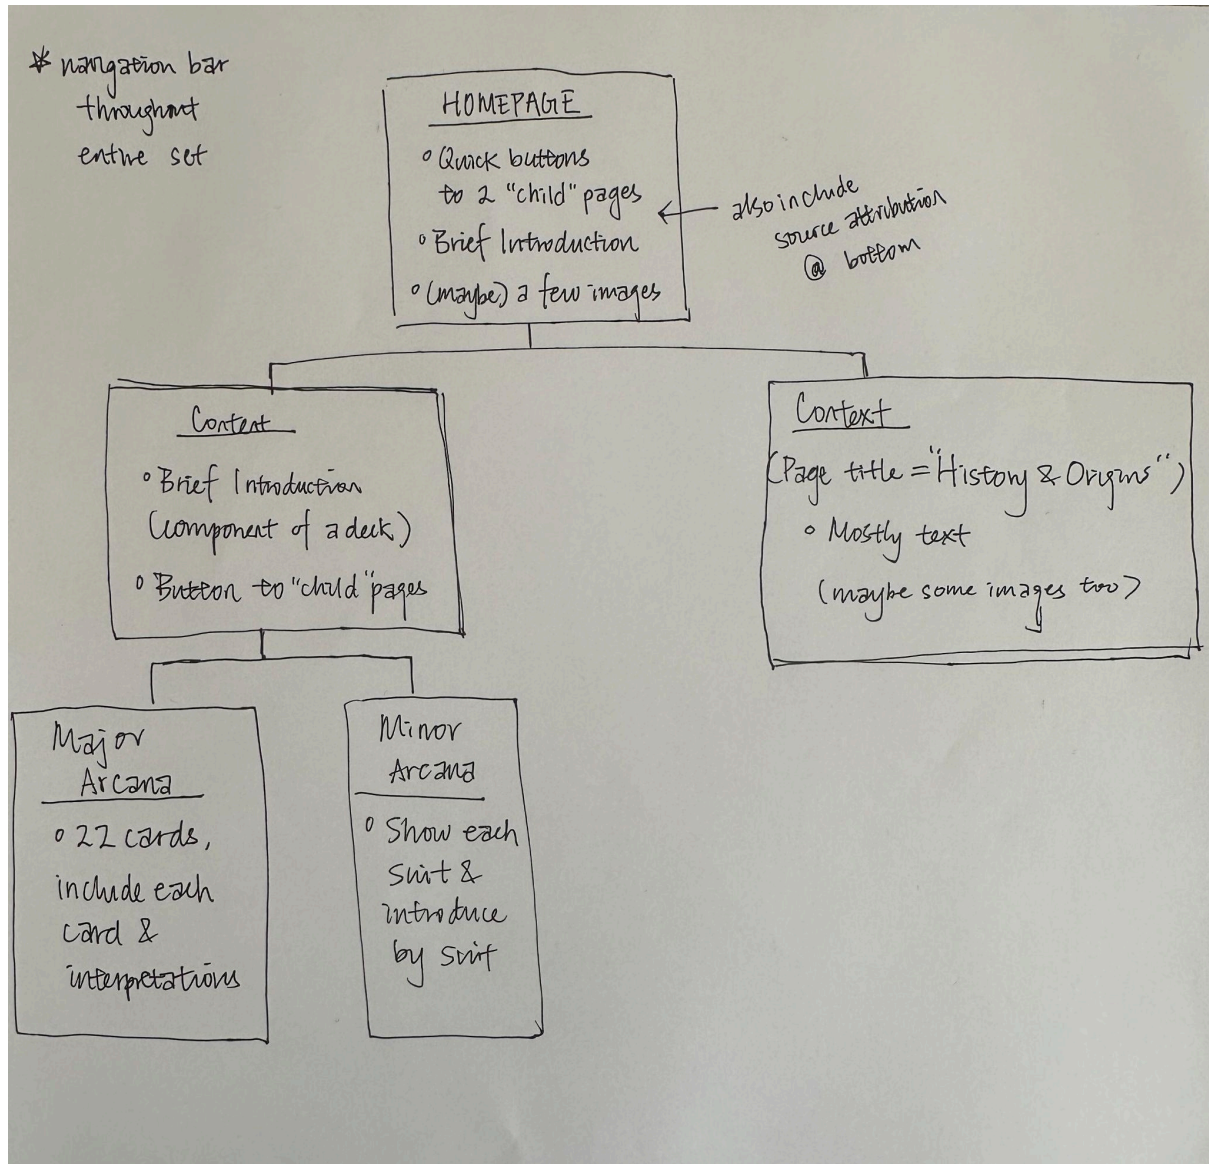 * navigation bar
throughout
entire set
HOMEPAGE
° Quick buttons
to 2 "child" pages
° Brief Introduction
° (maybe) a few images
also include
source attribution
@ bottom
Content
° Brief Introduction
(component of a deck)
° Button to "child" pages
Context
(Page title = "History & Origins")
° Mostly text
(maybe some images too)
Major
Arcana
° 22 cards,
include each
card &
interpretations
Minor
Arcana
° Show each
suit &
introduce
by suit